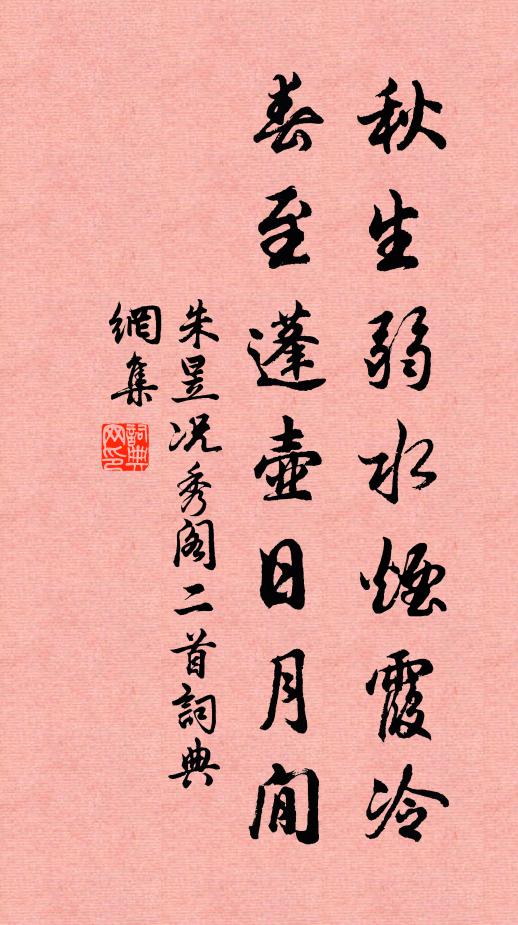 秋生弱水煙霞冷
春至蓬壺日月閒
朱昱况秀阁二首詞典
網集
詞典網印